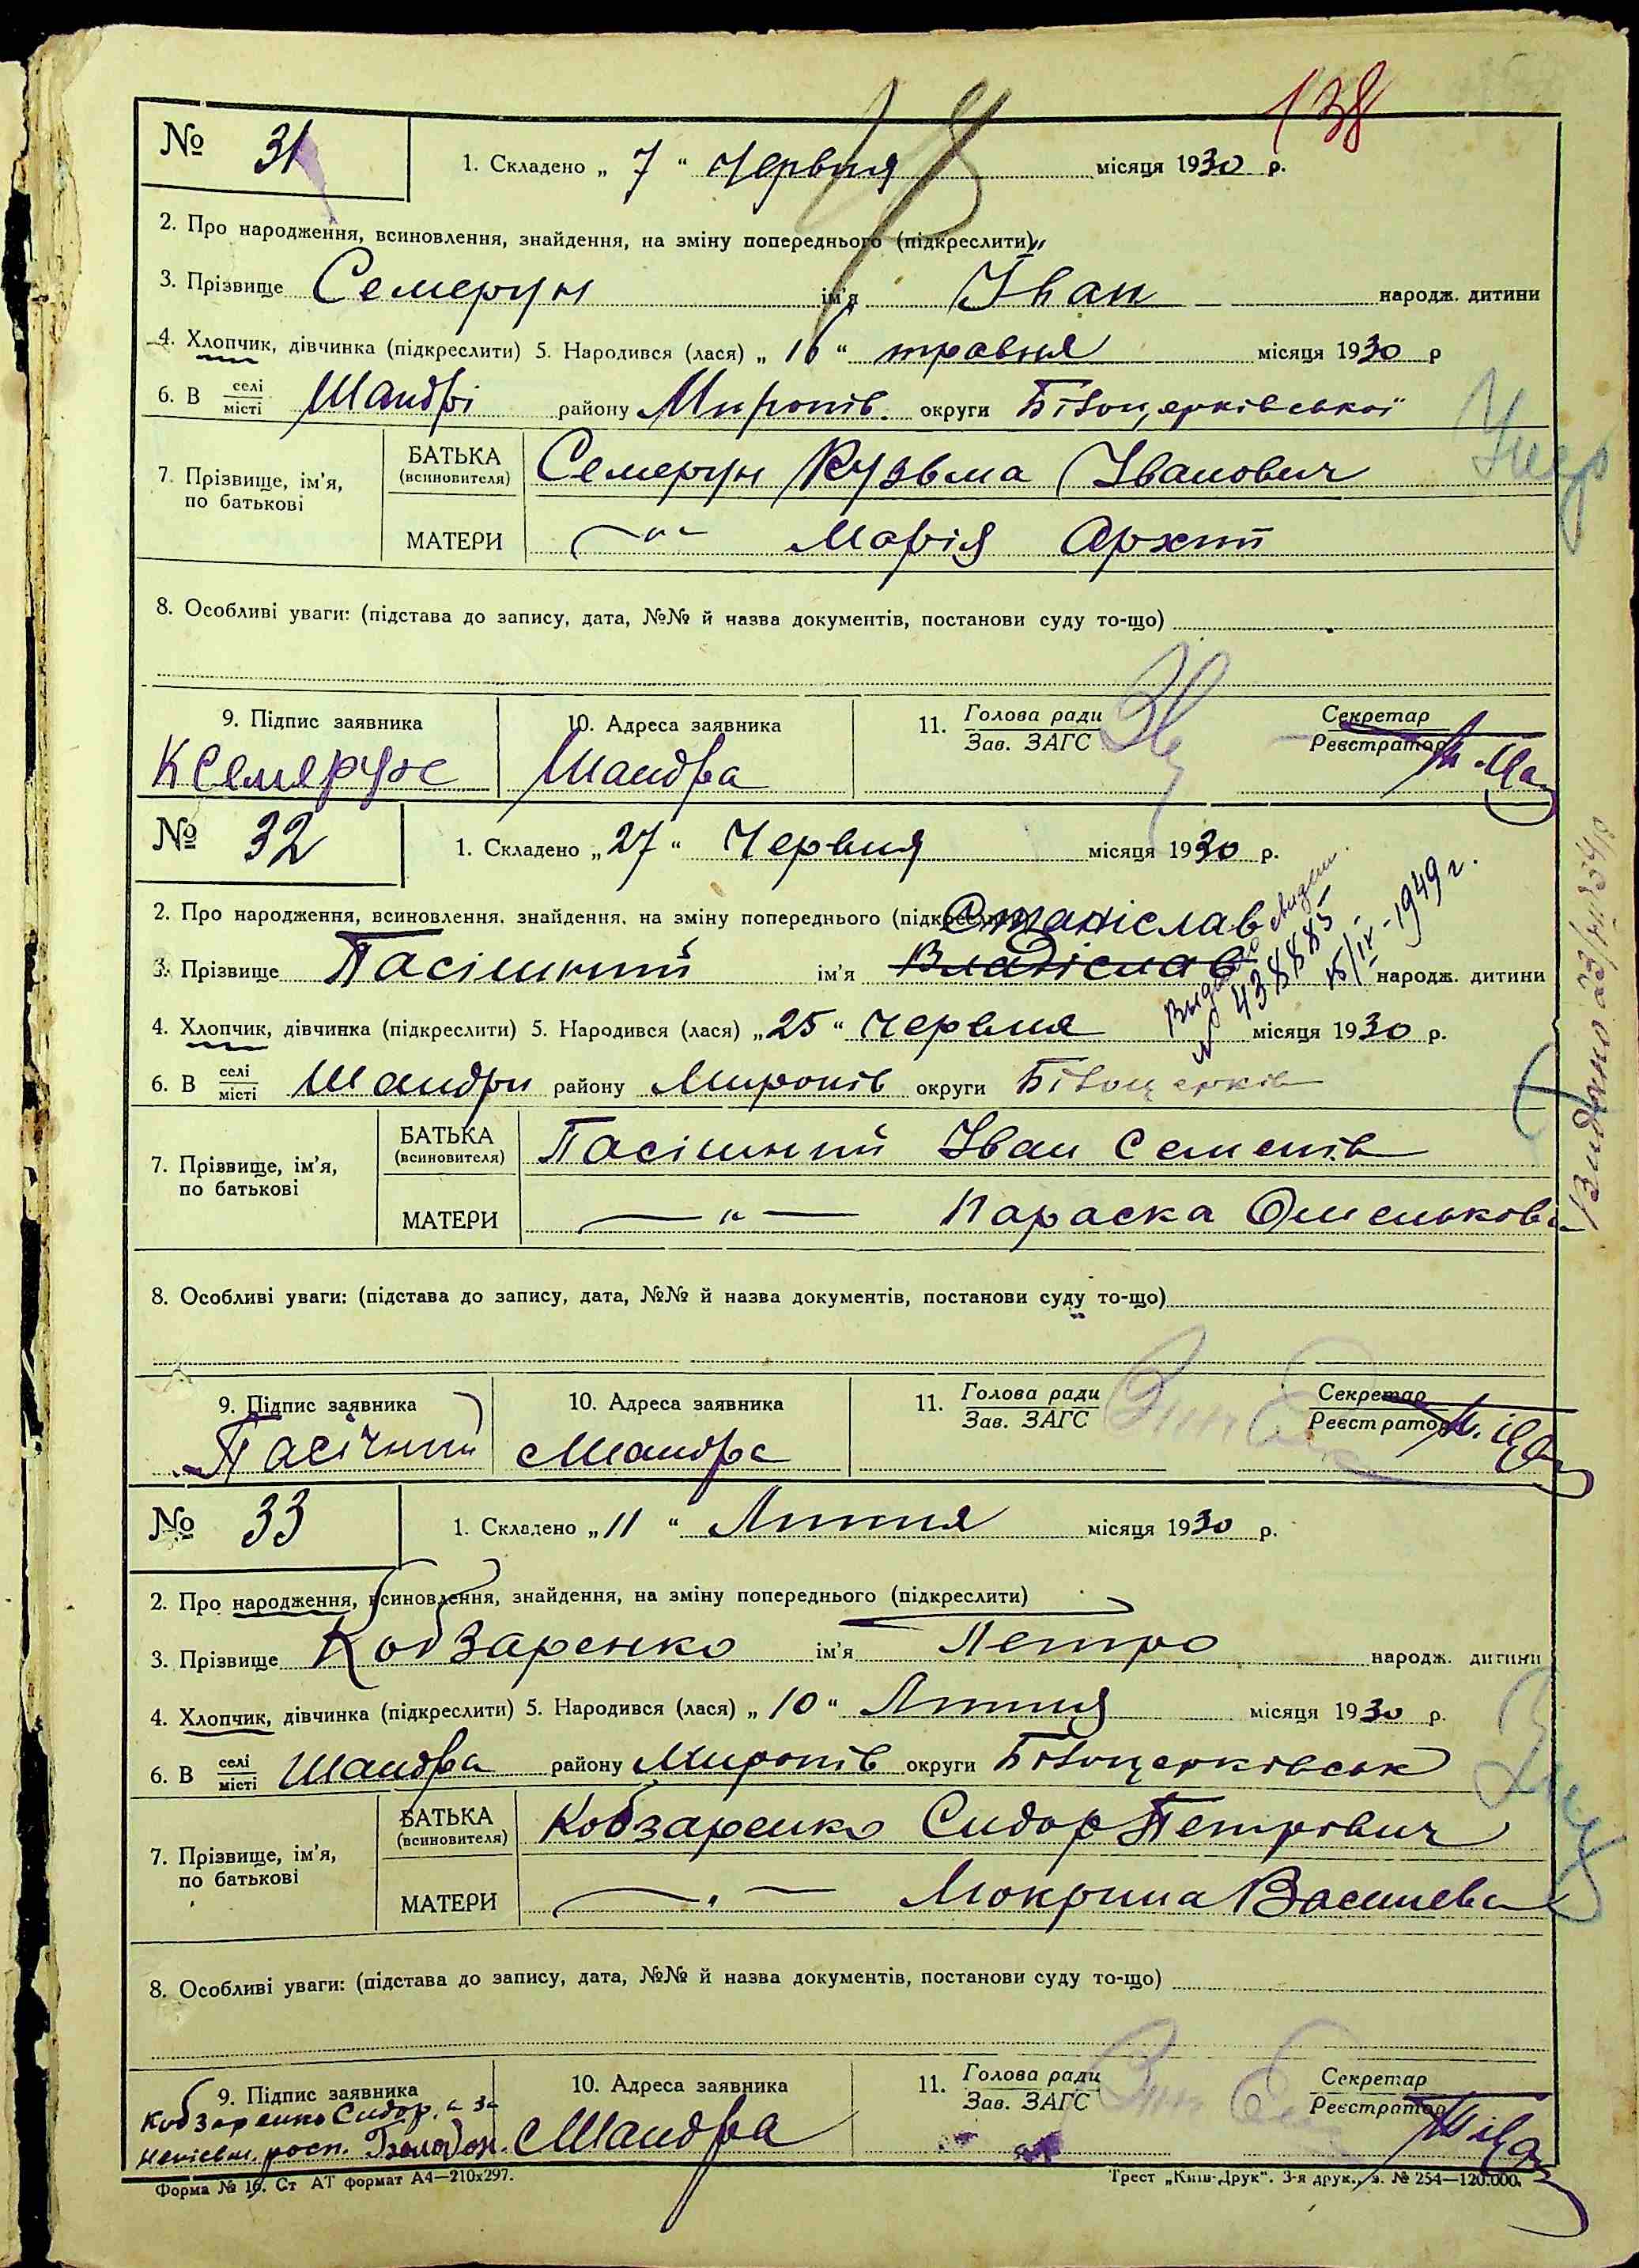 138
№ 31
1. Складено „ 7 “ Червня місяця 1930 р.
2. Про народження, всиновлення, знайдення, на зміну попереднього (підкреслити)
3. Прізвище Семерун ім'я Іван народж. дитини
4. Хлопчик, дівчинка (підкреслити) 5. Народився (лася) „ 16 “ травня місяця 1930 р
6. В селі/місті Шандрі району Миронів. округи Білоцерківської
7. Прізвище, ім'я, по батькові
БАТЬКА (всиновителя) Семерун Кузьма Іванович
МАТЕРИ —„— Марія Архип
8. Особливі уваги: (підстава до запису, дата, №№ й назва документів, постанови суду то-що)
9. Підпис заявника
10. Адреса заявника
11. Голова ради/Зав. ЗАГС
Секретар/Реєстратор
Шандра
№ 32
1. Складено „ 27 “ Червня місяця 1930 р.
2. Про народження, всиновлення, знайдення, на зміну попереднього (підкреслити)
Станіслав
3. Прізвище Пасішний ім'я Владіслав народж. дитини
№ 438885
15/IV-1949 г.
4. Хлопчик, дівчинка (підкреслити) 5. Народився (лася) „ 25 “ Червня місяця 1930 р.
6. В селі/місті Шандри району Миронів округи Білоцерків
7. Прізвище, ім'я, по батькові
БАТЬКА (всиновителя) Пасішний Іван Семенів
МАТЕРИ —„— Параска Омелькова
8. Особливі уваги: (підстава до запису, дата, №№ й назва документів, постанови суду то-що)
9. Підпис заявника
10. Адреса заявника
11. Голова ради/Зав. ЗАГС
Секретар/Реєстратор
Пасічний
Шандра
№ 33
1. Складено „ 11 “ Липня місяця 1930 р.
2. Про народження, всиновлення, знайдення, на зміну попереднього (підкреслити)
3. Прізвище Кобзаренко ім'я Петро народж. дитини
4. Хлопчик, дівчинка (підкреслити) 5. Народився (лася) „ 10 “ Липня місяця 1930 р.
6. В селі/місті Шандра району Миронів округи Білоцерківськ
7. Прізвище, ім'я, по батькові
БАТЬКА (всиновителя) Кобзаренко Сидор Петрович
МАТЕРИ —„— Мокрина Василева
8. Особливі уваги: (підстава до запису, дата, №№ й назва документів, постанови суду то-що)
9. Підпис заявника
10. Адреса заявника
11. Голова ради/Зав. ЗАГС
Секретар/Реєстратор
Кобзаренко Сидор. а за
Шандра
Форма № 16. Ст АТ формат А4—210х297.
Трест „Київ-Друк“. 3-я друк., з. № 254—120.000.
Видано